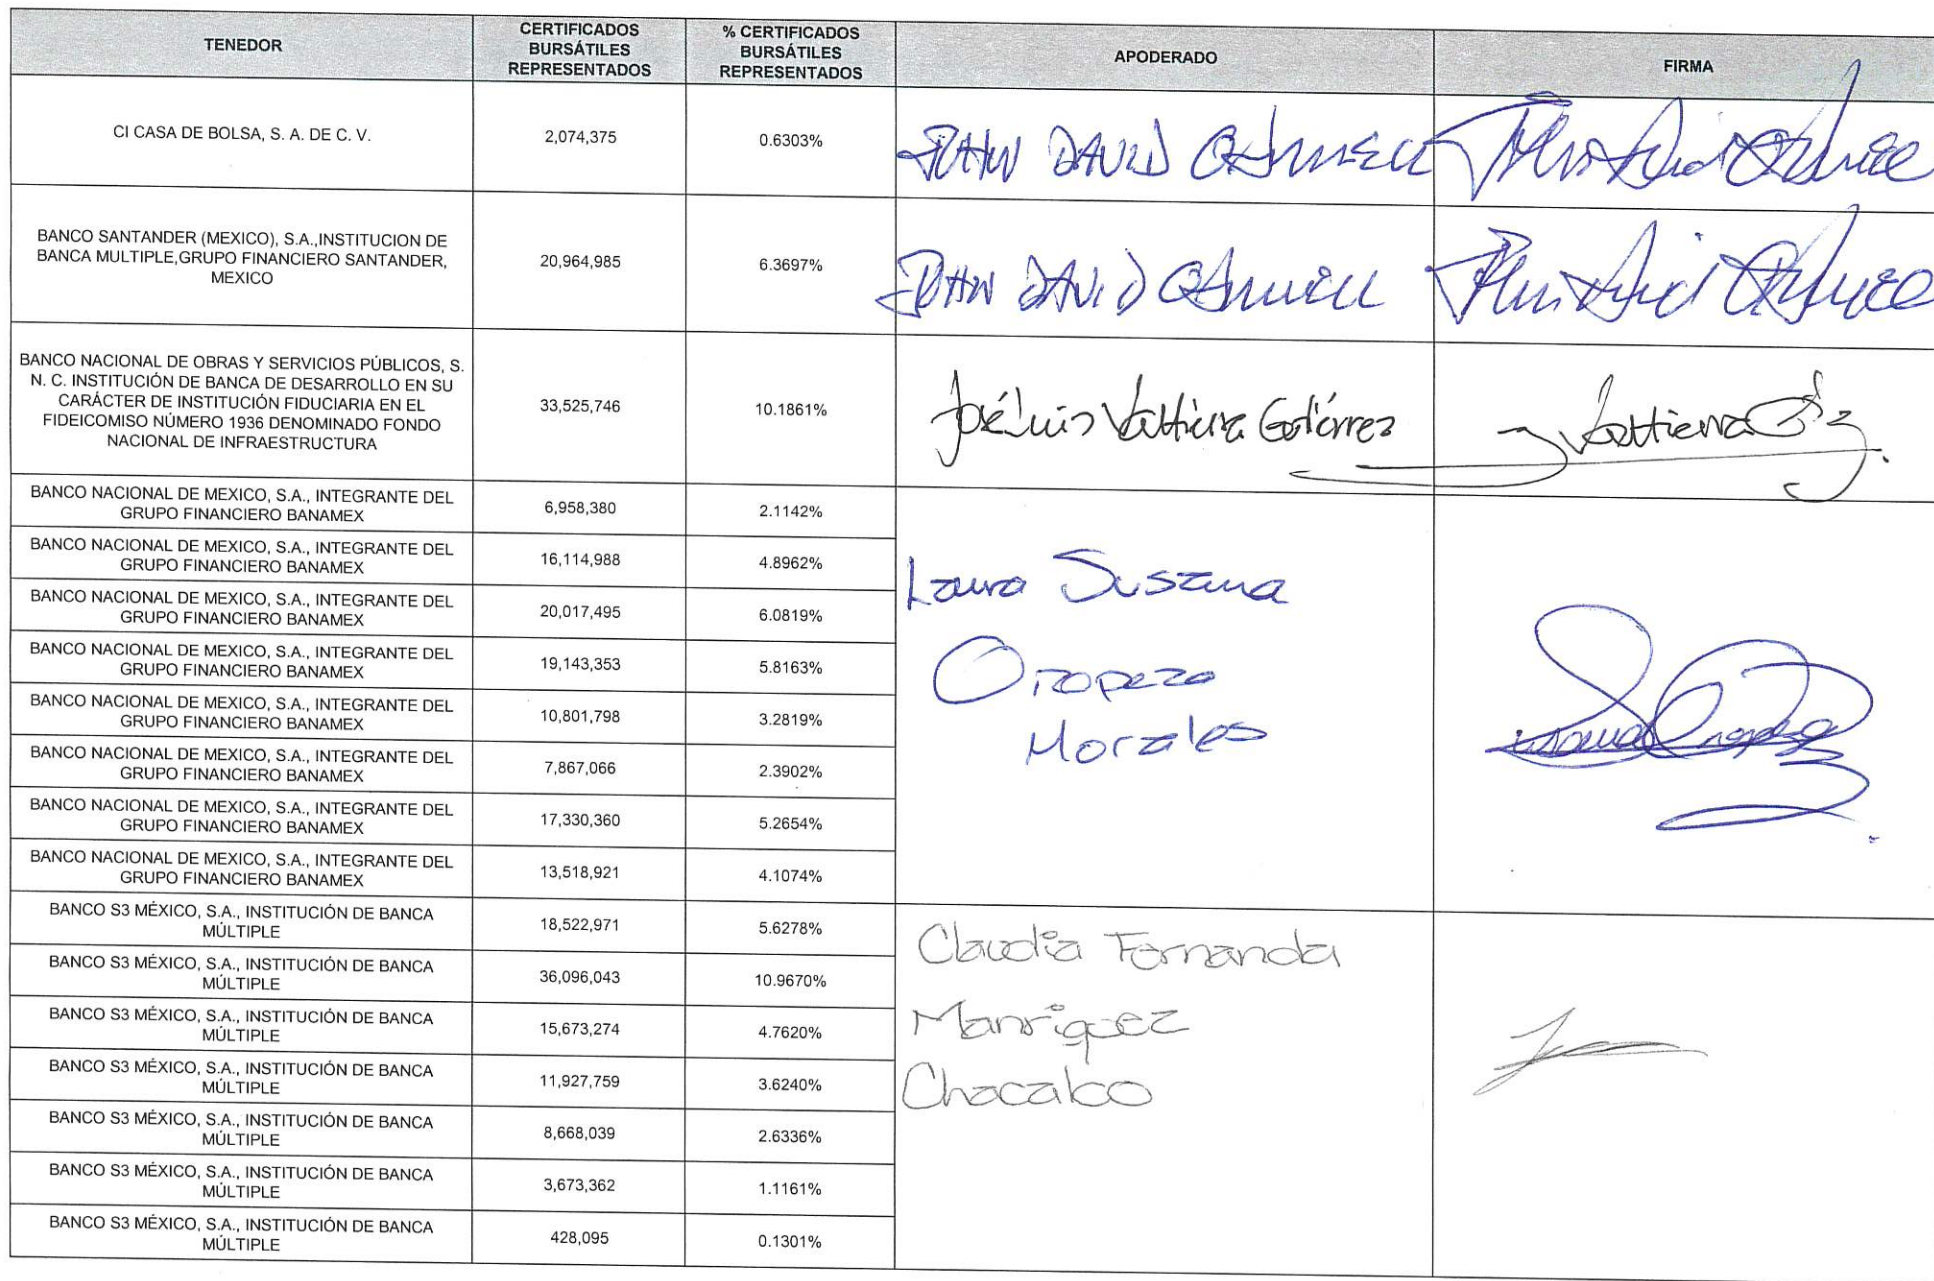 TENEDOR
CERTIFICADOS
BURSÁTILES
REPRESENTADOS
% CERTIFICADOS
BURSÁTILES
REPRESENTADOS
APODERADO
FIRMA
CI CASA DE BOLSA, S. A. DE C. V.
2,074,375
0.6303%
JOHN DAVID
BANCO SANTANDER (MEXICO), S.A.,INSTITUCION DE
BANCA MULTIPLE,GRUPO FINANCIERO SANTANDER,
MEXICO
20,964,985
6.3697%
JOHN DAVID
BANCO NACIONAL DE OBRAS Y SERVICIOS PÚBLICOS, S.
N. C. INSTITUCIÓN DE BANCA DE DESARROLLO EN SU
CARÁCTER DE INSTITUCIÓN FIDUCIARIA EN EL
FIDEICOMISO NÚMERO 1936 DENOMINADO FONDO
NACIONAL DE INFRAESTRUCTURA
33,525,746
10.1861%
José Luis Vattiera Gutiérrez
BANCO NACIONAL DE MEXICO, S.A., INTEGRANTE DEL
GRUPO FINANCIERO BANAMEX
6,958,380
2.1142%
BANCO NACIONAL DE MEXICO, S.A., INTEGRANTE DEL
GRUPO FINANCIERO BANAMEX
16,114,988
4.8962%
BANCO NACIONAL DE MEXICO, S.A., INTEGRANTE DEL
GRUPO FINANCIERO BANAMEX
20,017,495
6.0819%
BANCO NACIONAL DE MEXICO, S.A., INTEGRANTE DEL
GRUPO FINANCIERO BANAMEX
19,143,353
5.8163%
BANCO NACIONAL DE MEXICO, S.A., INTEGRANTE DEL
GRUPO FINANCIERO BANAMEX
10,801,798
3.2819%
BANCO NACIONAL DE MEXICO, S.A., INTEGRANTE DEL
GRUPO FINANCIERO BANAMEX
7,867,066
2.3902%
BANCO NACIONAL DE MEXICO, S.A., INTEGRANTE DEL
GRUPO FINANCIERO BANAMEX
17,330,360
5.2654%
BANCO NACIONAL DE MEXICO, S.A., INTEGRANTE DEL
GRUPO FINANCIERO BANAMEX
13,518,921
4.1074%
Laura Susana
Oropeza
Morales
BANCO S3 MÉXICO, S.A., INSTITUCIÓN DE BANCA
MÚLTIPLE
18,522,971
5.6278%
BANCO S3 MÉXICO, S.A., INSTITUCIÓN DE BANCA
MÚLTIPLE
36,096,043
10.9670%
BANCO S3 MÉXICO, S.A., INSTITUCIÓN DE BANCA
MÚLTIPLE
15,673,274
4.7620%
BANCO S3 MÉXICO, S.A., INSTITUCIÓN DE BANCA
MÚLTIPLE
11,927,759
3.6240%
BANCO S3 MÉXICO, S.A., INSTITUCIÓN DE BANCA
MÚLTIPLE
8,668,039
2.6336%
BANCO S3 MÉXICO, S.A., INSTITUCIÓN DE BANCA
MÚLTIPLE
3,673,362
1.1161%
BANCO S3 MÉXICO, S.A., INSTITUCIÓN DE BANCA
MÚLTIPLE
428,095
0.1301%
Claudia Fernanda
Manriquez
Chacalco